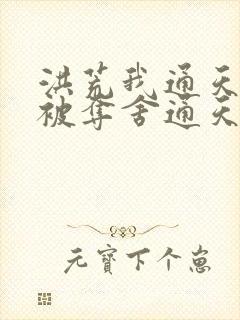 洪荒我通天
被奪舍通天
元寶下个崽